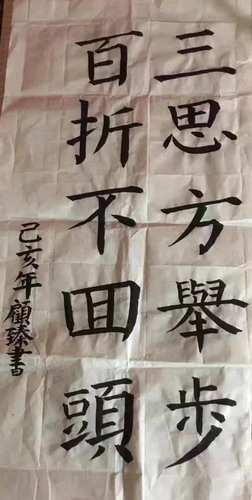 三思方舉步
百折不回頭
己亥年顧臻書